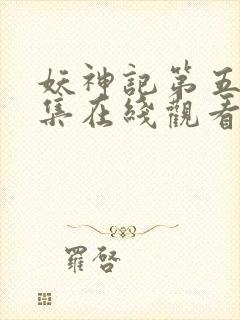 妖神記第五
集在綫觀看
羅啓